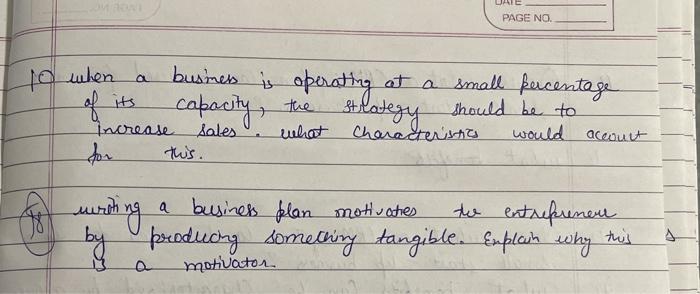 DATE
PAGE NO.
10 when a business is operating at a small percentage
of its capacity, the strategy should be to
increase sales. what characteristics would account
for this.
writing a business plan motivates the entrepreneur
by producing something tangible. Explain why this
is a motivator.